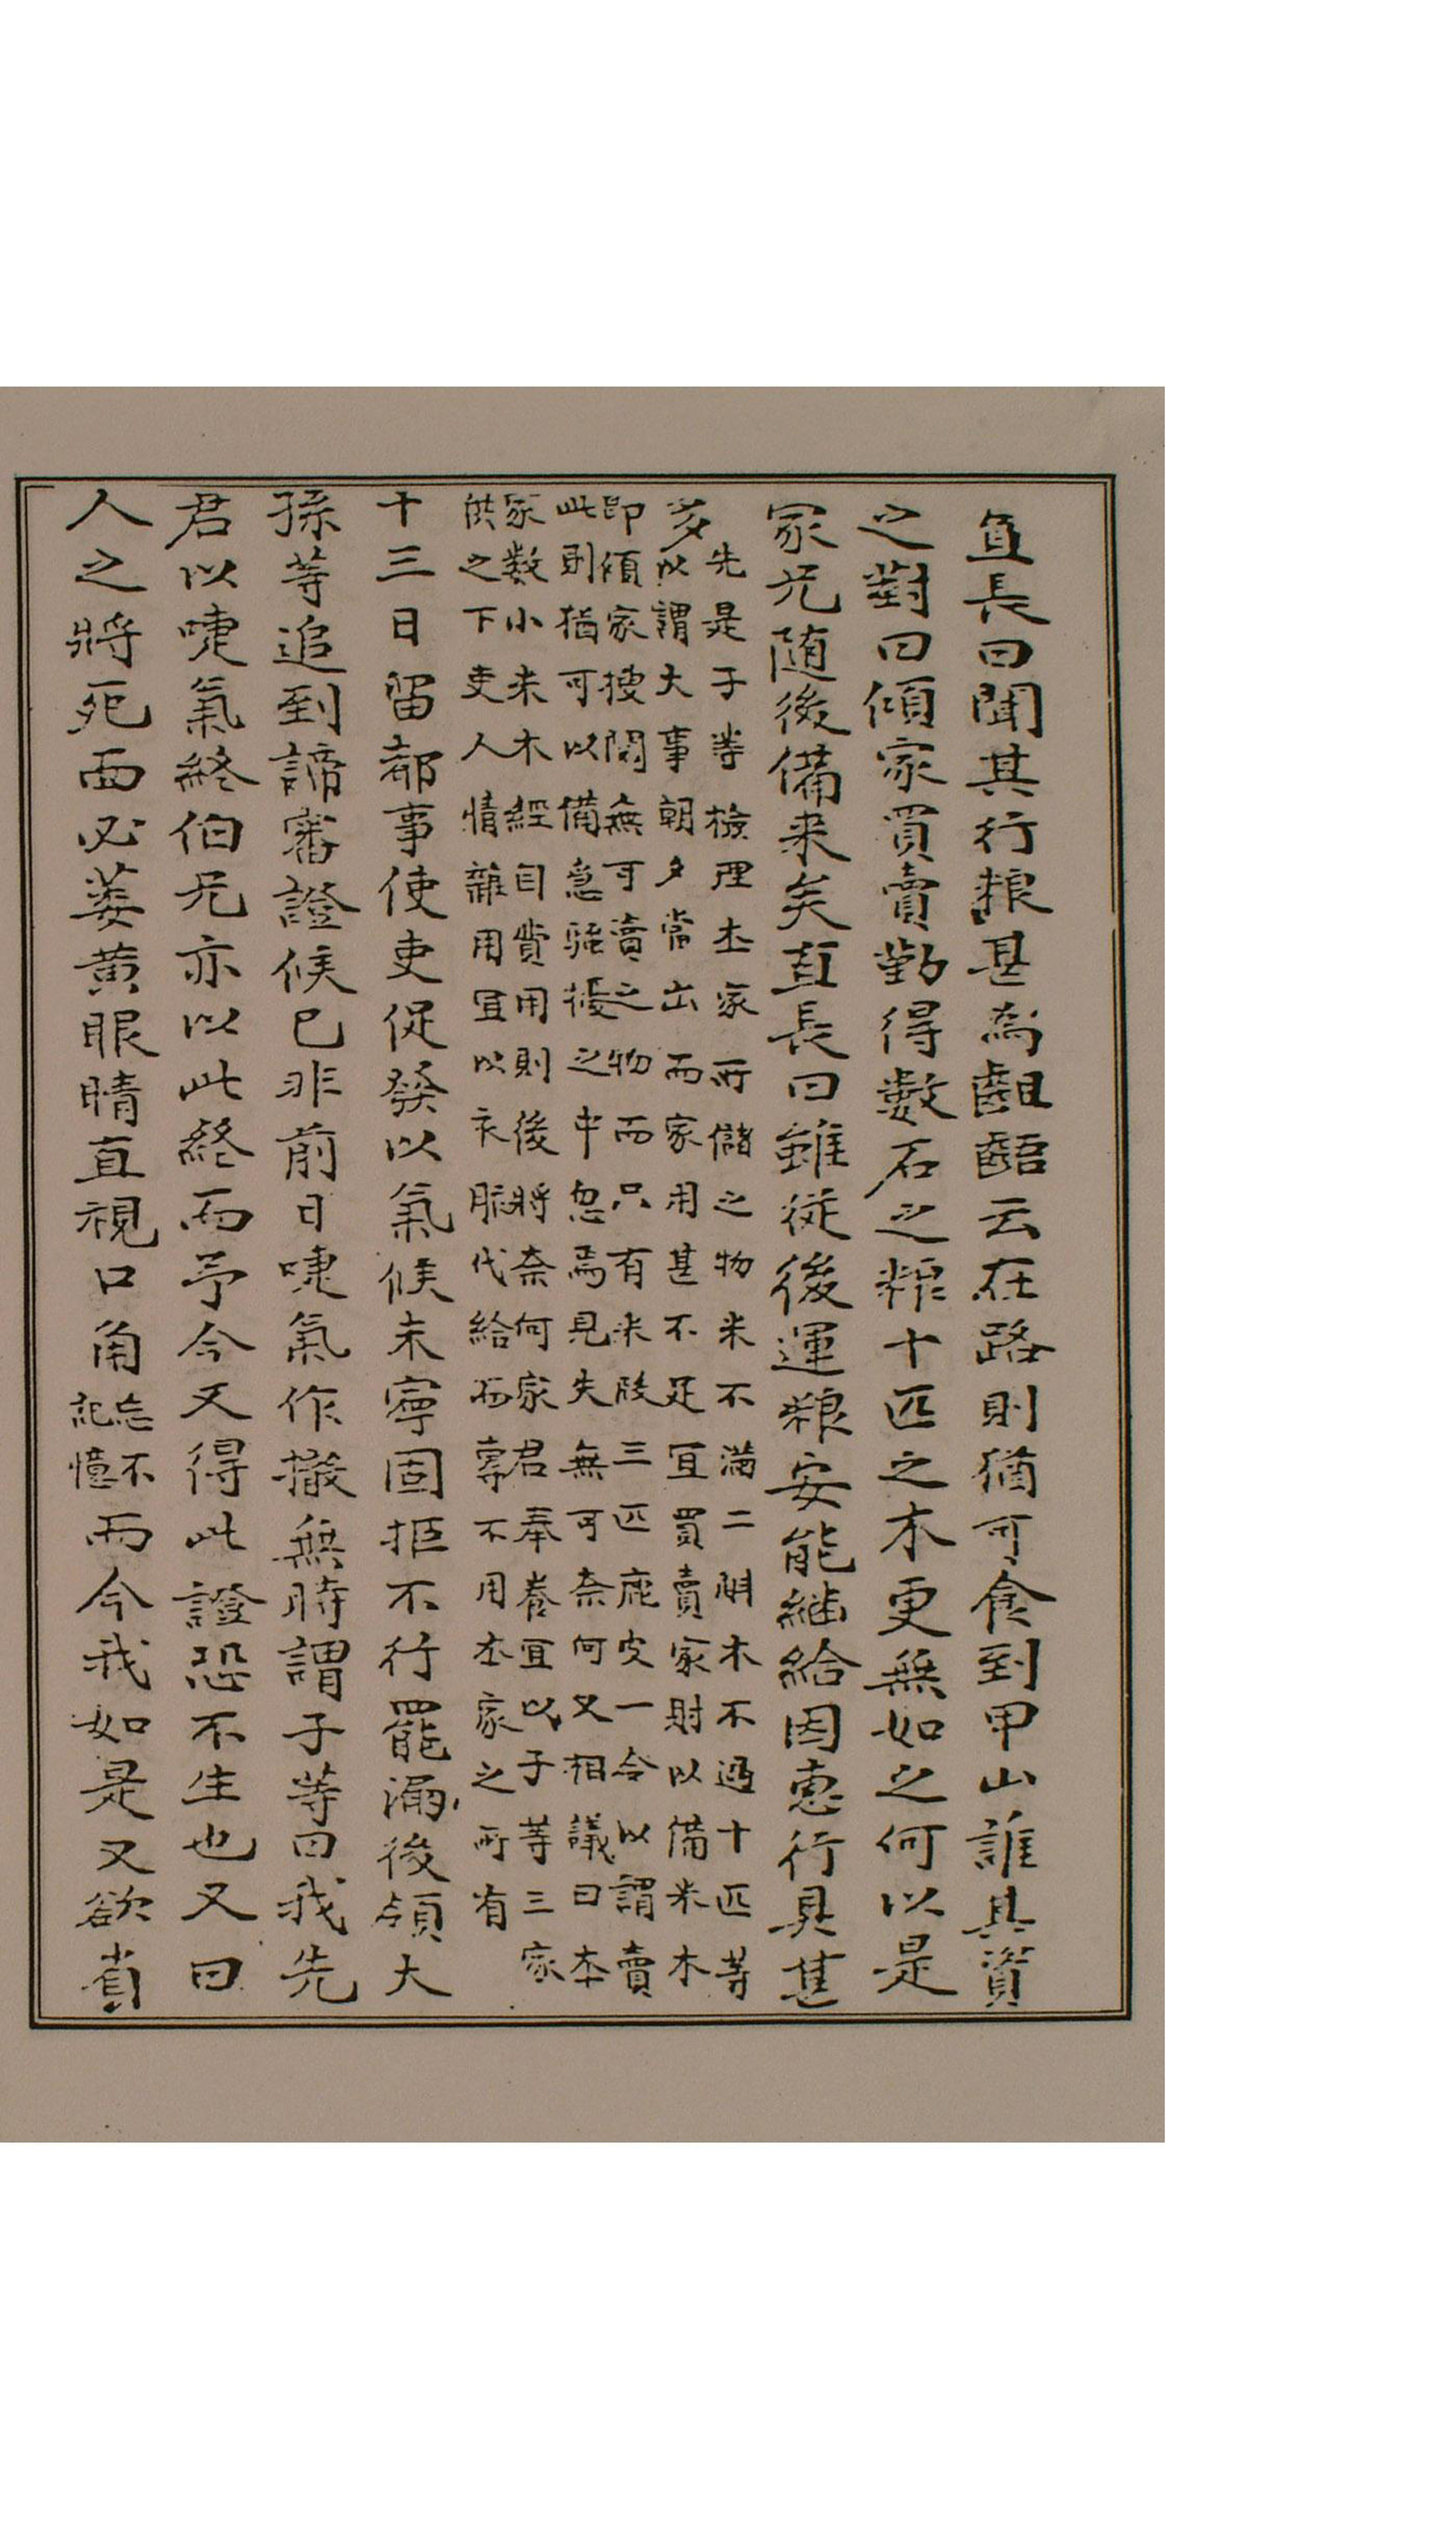 直長曰聞其行粮甚爲齟齬云在路則猶可食到甲山誰其資
之對曰傾家買賣勤得數石之粮十匹之木更無如之何以是
家兄随後備来矣直長曰雖從後運粮安能継給因悤行具甚
多
先是子等檢理本家所儲之物米不滿二朔木不過十匹等
以謂大事朝夕當出而家用甚不足宜買賣家財以備米木
即傾家搜閱無可賣之物而只有米段三匹鹿皮一令以謂賣
此則猶可以備急騷擾之中忽焉見失無可奈何又相議曰本
家数小米木經自費用則後將奈何家君奉養宜以子等三家
供之下吏人情雜用宜以衣服代給而勿用本家之所有
十三日留都事使吏促發以氣候未寧固拒不行罷漏後領大
孫等追到諦審證候已非前日嘶氣作撤無時謂子等曰我先
君以嘶氣終伯兄亦以此終而予今又得此證恐不生也又曰
人之將死面必萎黃眼睛直視口角
忘不
記憶
而今我如是又欲嘗